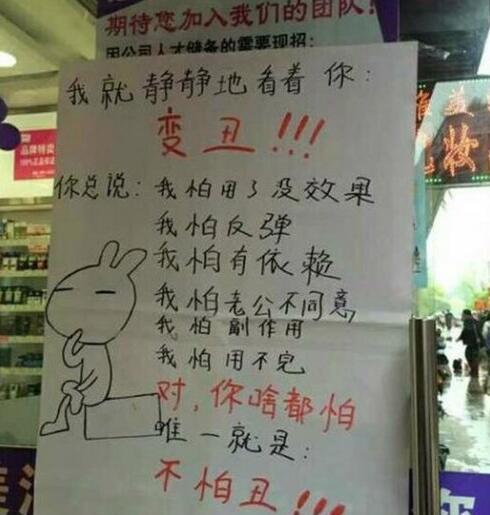 期待您加入我们的团队!
因公司人才储备的需要现招:
我就静静地看着你:
变丑!!!
你总说:我怕用了没效果
我怕反弹
我怕有依赖
我怕老公不同意
我怕副作用
我怕用不完
对,你啥都怕
唯一就是:
不怕丑!!!
品牌特卖
妆